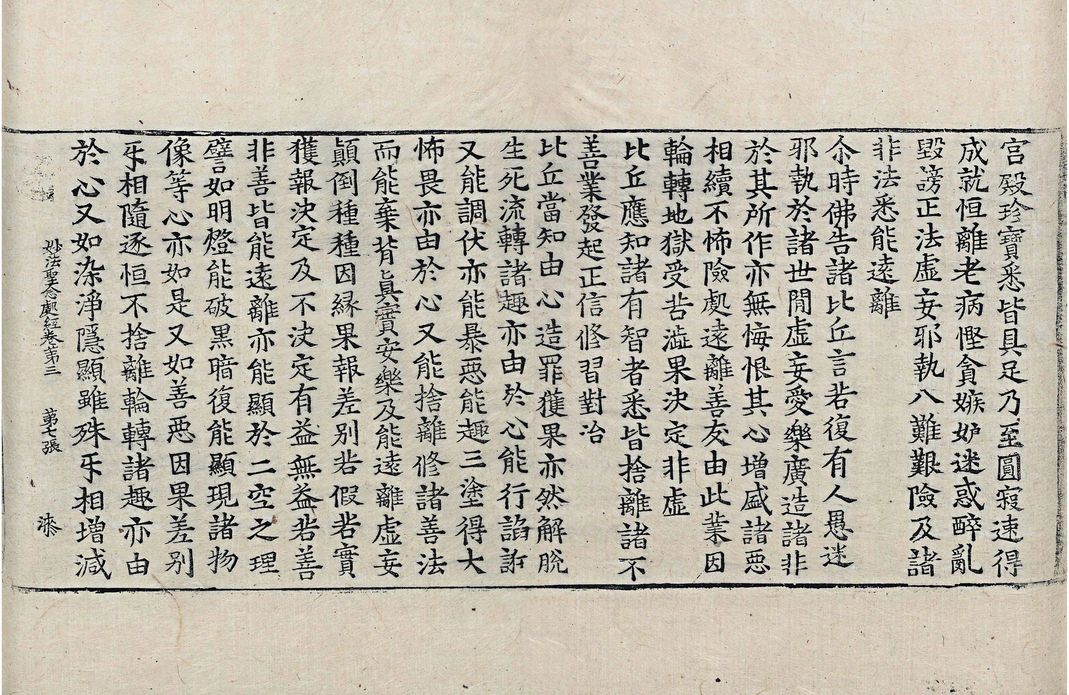 宮殿珍寶悉皆具足乃至圓寂速得
成就恒離老病慳貪嫉妒迷惑醉亂
毀謗正法虛妄邪執八難艱險及諸
非法悉能遠離
尒時佛告諸比丘言若復有人愚迷
邪執於諸世閒虛妄愛樂廣造諸非
於其所作亦無悔恨其心增盛諸惡
相續不怖險處遠離善友由此業因
輪轉地獄受苦澁果決定非虛
比丘應知諸有智者悉皆捨離諸不
善業發起正信修習對治
比丘當知由心造罪獲果亦然解脫
生死流轉諸趣亦由於心能行諂誑
又能調伏亦能暴惡能趣三塗得大
怖畏亦由於心又能捨離修諸善法
而能棄背真實安樂及能遠離虛妄
顚倒種種因緣果報差別若假若實
獲報決定及不決定有益無益若善
非善皆能遠離亦能顯於二空之理
譬如明燈能破黑暗復能顯現諸物
像等心亦如是又如善惡因果差別
乑相隨逐恒不捨離輪轉諸趣亦由
妙法聖念處經卷第三 第七張 漆
於心又如染淨隱顯雖殊乑相增減